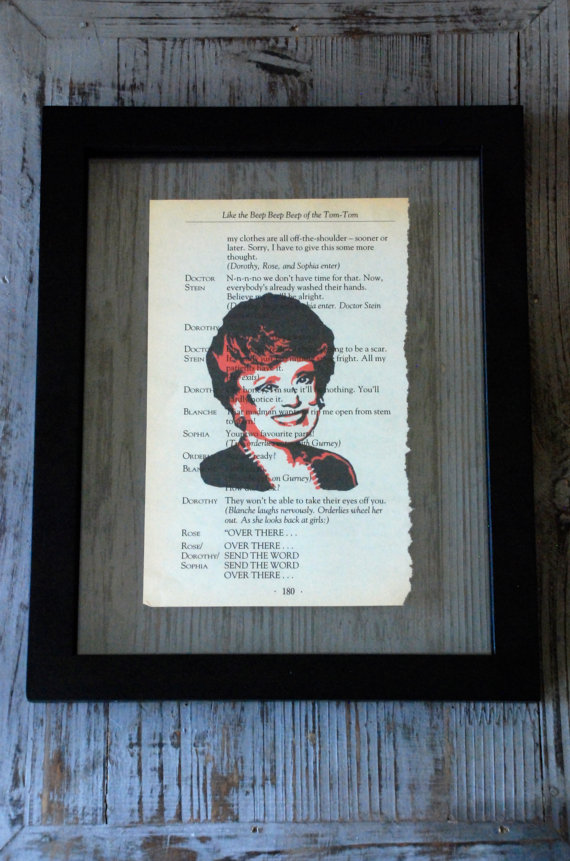 Like the Beep Beep Beep of the Tom-Tom
my clothes are all off-the-shoulder – sooner or
later. Sorry, I have to give this some more
thought.
(Dorothy, Rose, and Sophia enter)
DOCTOR N-n-n-no we don't have time for that. Now,
STEIN everybody's already washed their hands.
Believe be alright.
enter. Doctor Stein
DOROTHY
DOCTOR to be a scar.
STEIN fright. All my
have it.
exits)
DOROTHY sure it'll nothing. You'll
hardly notice it.
BLANCHE That madman wants to rip me open from stem
to
SOPHIA Your two favourite parts!
orderlies with Gurney)
ORDERLY ready?
BLANCHE
on Gurney)
How do look?
DOROTHY They won't be able to take their eyes off you.
(Blanche laughs nervously. Orderlies wheel her
out. As she looks back at girls:)
ROSE "OVER THERE . . .
ROSE/ OVER THERE . . .
DOROTHY/ SEND THE WORD
SOPHIA SEND THE WORD
OVER THERE . . .
· 180 ·